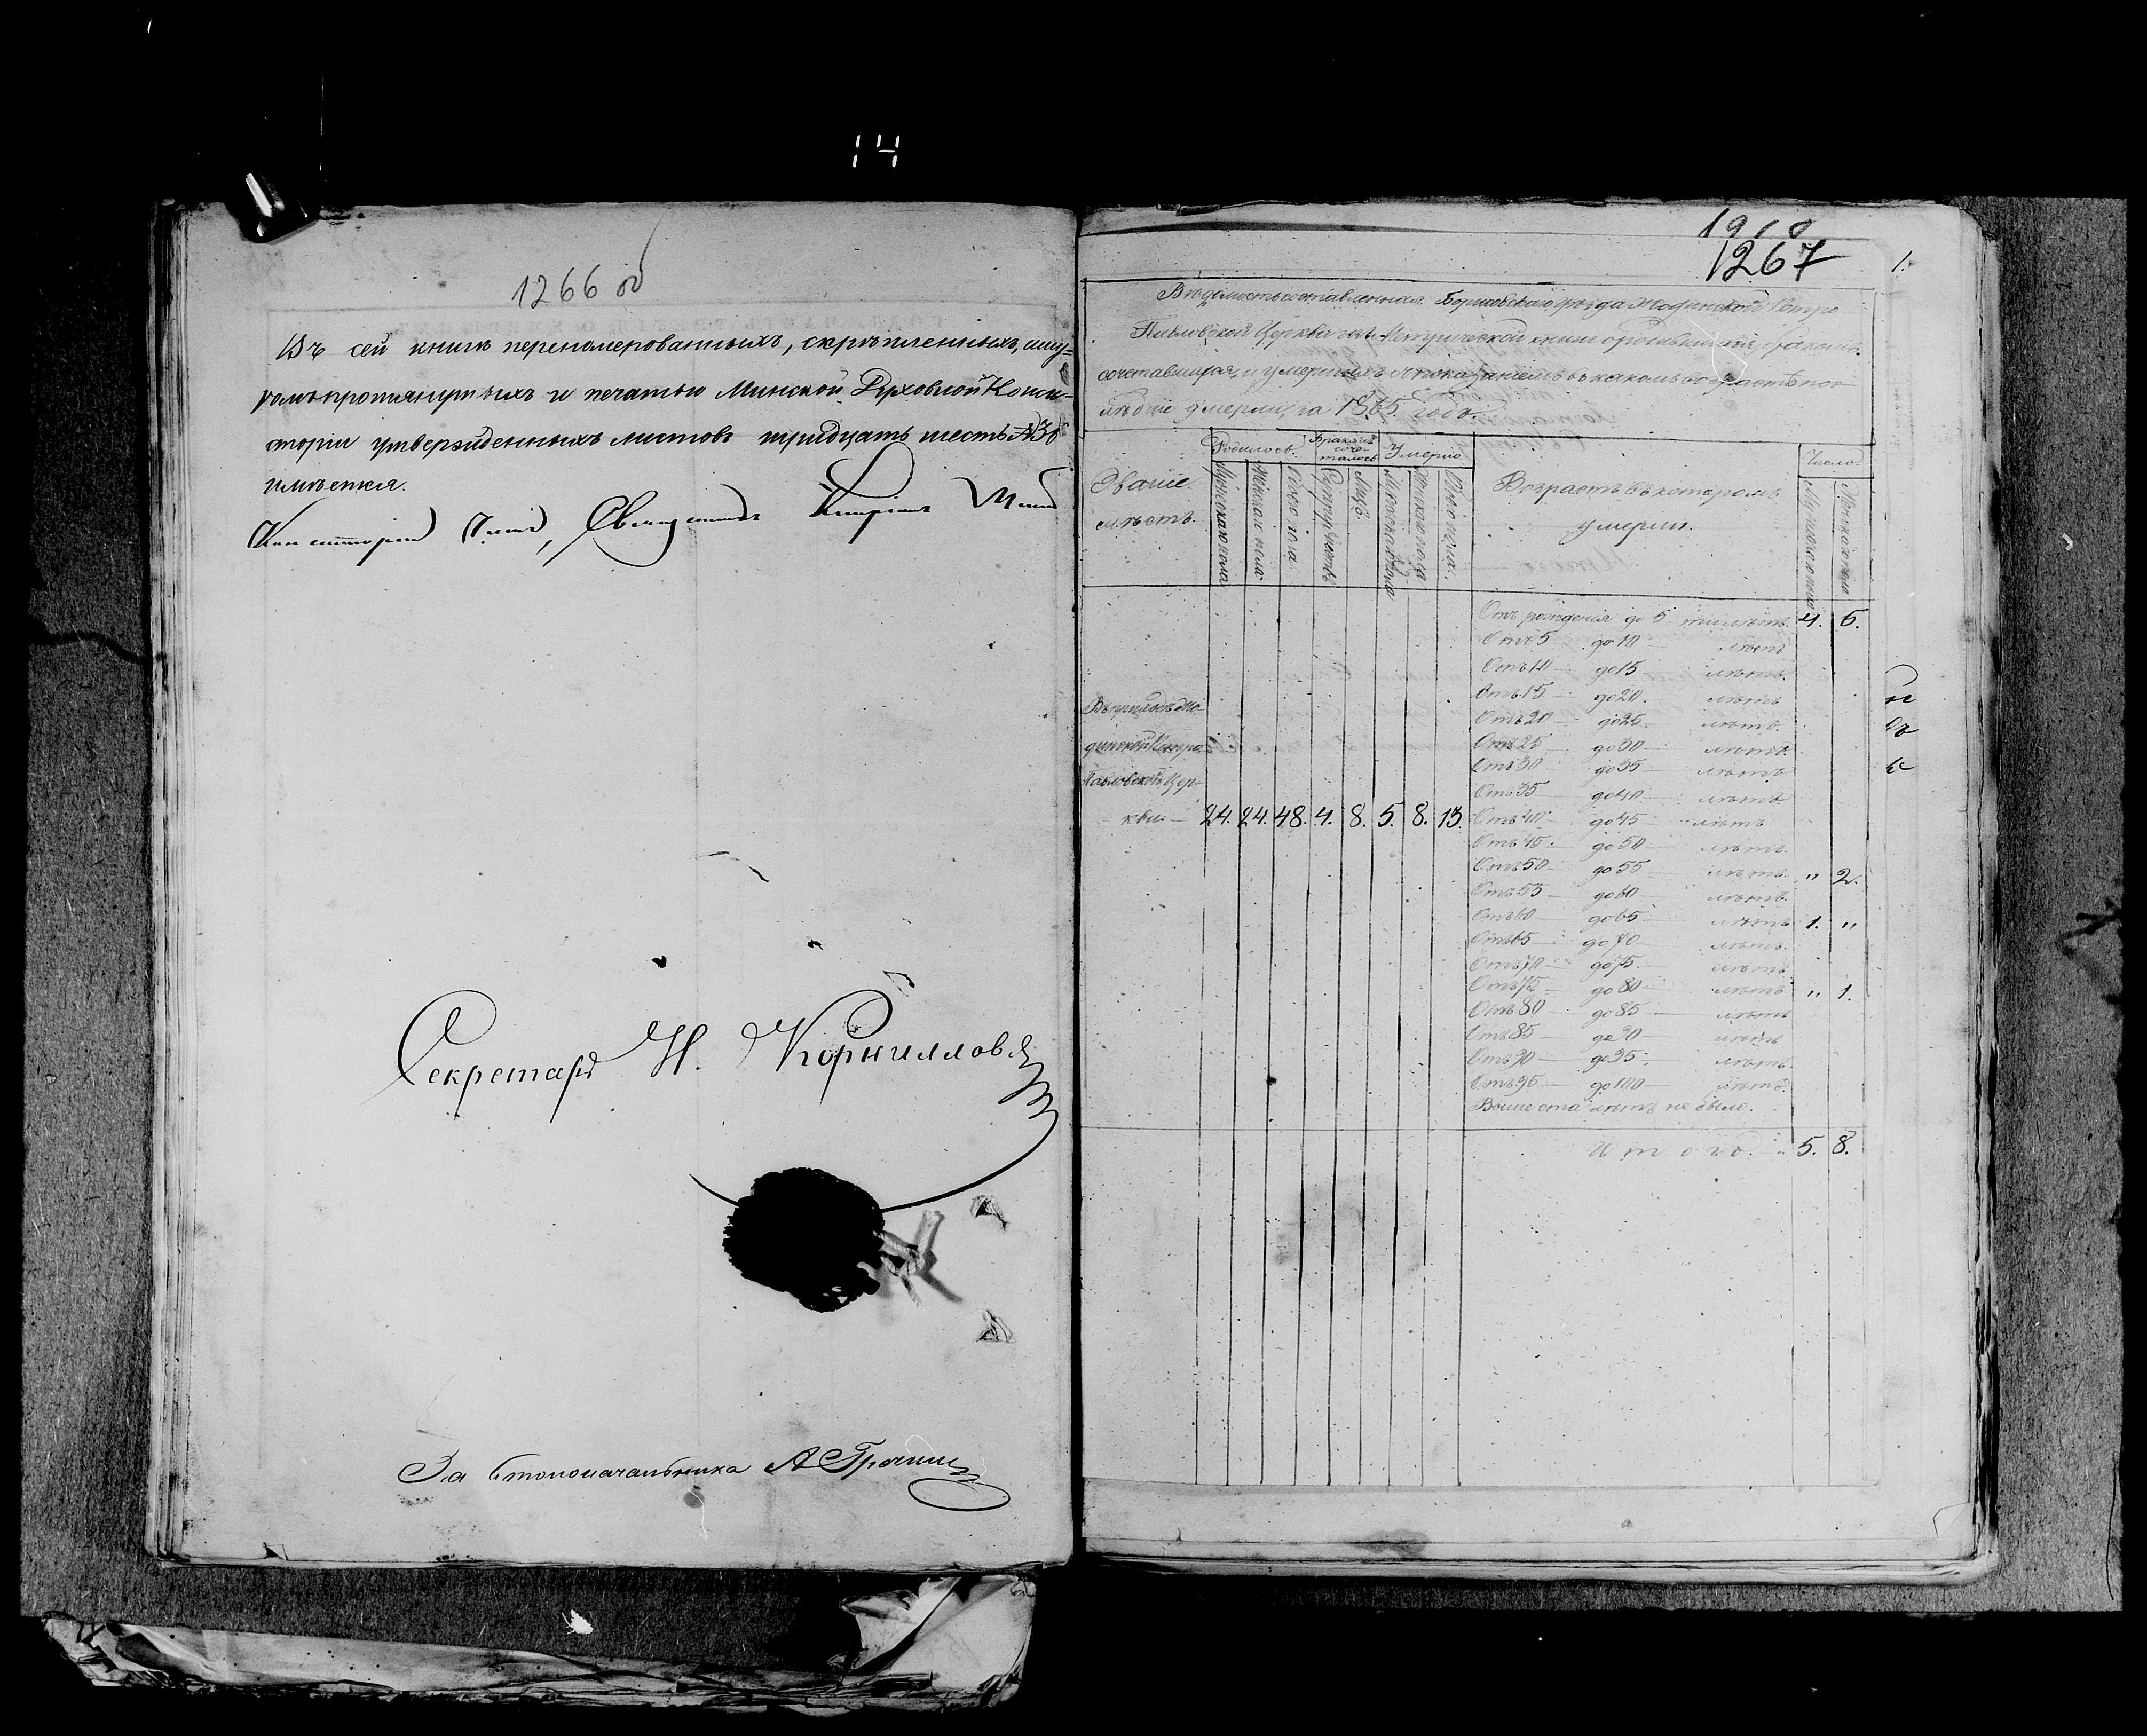 14
1266 об
Въ сей книгѣ перенумерованныхъ, скрѣпленныхъ, шну-
ромъ протянутыхъ и печатью Минской Духовной Конси-
сторіи утвержденныхъ листовъ тридцать шесть №36
имѣется.
Консисторіи Членъ, Священникъ
Секретарь Н. Корниловъ
За Столоначальника А
1910
1267
1.
Вѣдомость составленная Борисовскаго уѣзда Жодинской Петро
Павловской Церкви изъ Метрической книги о родившихся, бракомъ
сочетавшихся, и умершихъ съ показаніемъ въ какомъ возрастѣ
умерли, за 1865 годъ.
Званіе
мѣстъ.
Родилось.
Мужскаго пола
Женскаго пола
Обоего пола
Бракомъ
соче-
талось
Супружествъ
Лицъ.
Умерло
Мужскаго пола
Женскаго пола
Обоего пола.
Возрастъ въ которомъ
умерли.
Число
Мужскаго пола
Женскаго пола
Въ приходѣ Жо-
динской Петро-
Павловской Цер-
кви 24. 24. 48. 4. 8. 5. 8. 13.
Отъ рожденія до 5 ти лѣтъ 4. 5.
Отъ 5 до 10 лѣтъ
Отъ 10 до 15 лѣтъ
Отъ 15 до 20 лѣтъ
Отъ 20 до 25 лѣтъ
Отъ 25 до 30 лѣтъ
Отъ 30 до 35 лѣтъ
Отъ 35 до 40 лѣтъ
Отъ 40 до 45 лѣтъ
Отъ 45 до 50 лѣтъ
Отъ 50 до 55 лѣтъ " 2.
Отъ 55 до 60 лѣтъ
Отъ 60 до 65 лѣтъ 1. "
Отъ 65 до 70 лѣтъ
Отъ 70 до 75 лѣтъ
Отъ 75 до 80 лѣтъ " 1.
Отъ 80 до 85 лѣтъ
Отъ 85 до 90 лѣтъ
Отъ 90 до 95 лѣтъ
Отъ 95 до 100 лѣтъ
Выше ста лѣтъ не было.
Итого 5. 8.